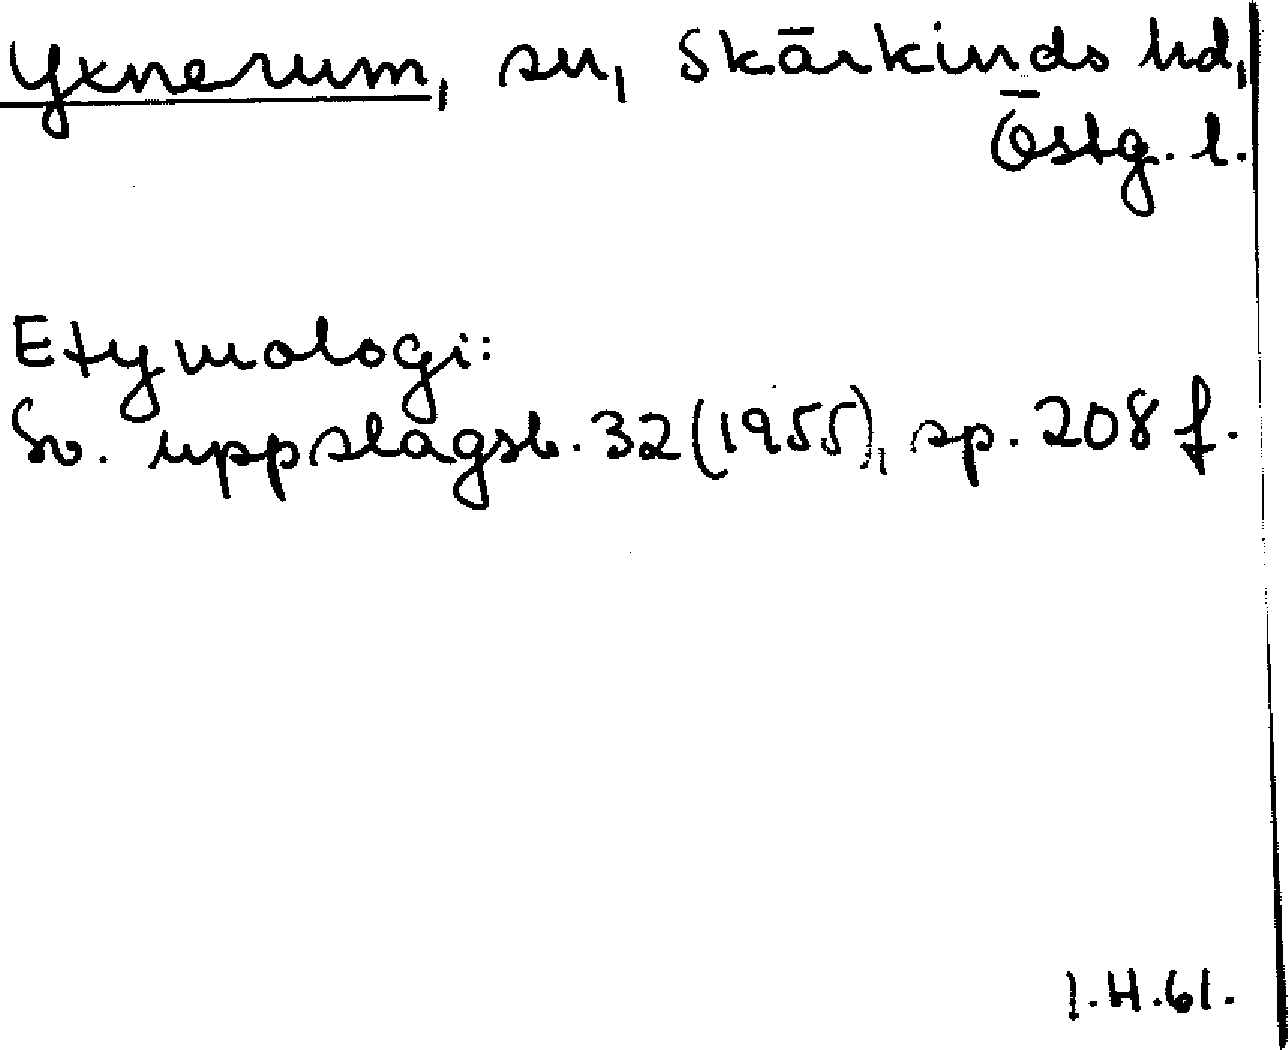 Yxnerum, sn, Skärkinds hd,
Östg. l.
Etymologi:
Sv. uppslagsb. 32 (1955), sp. 208 f.
I.H.61.